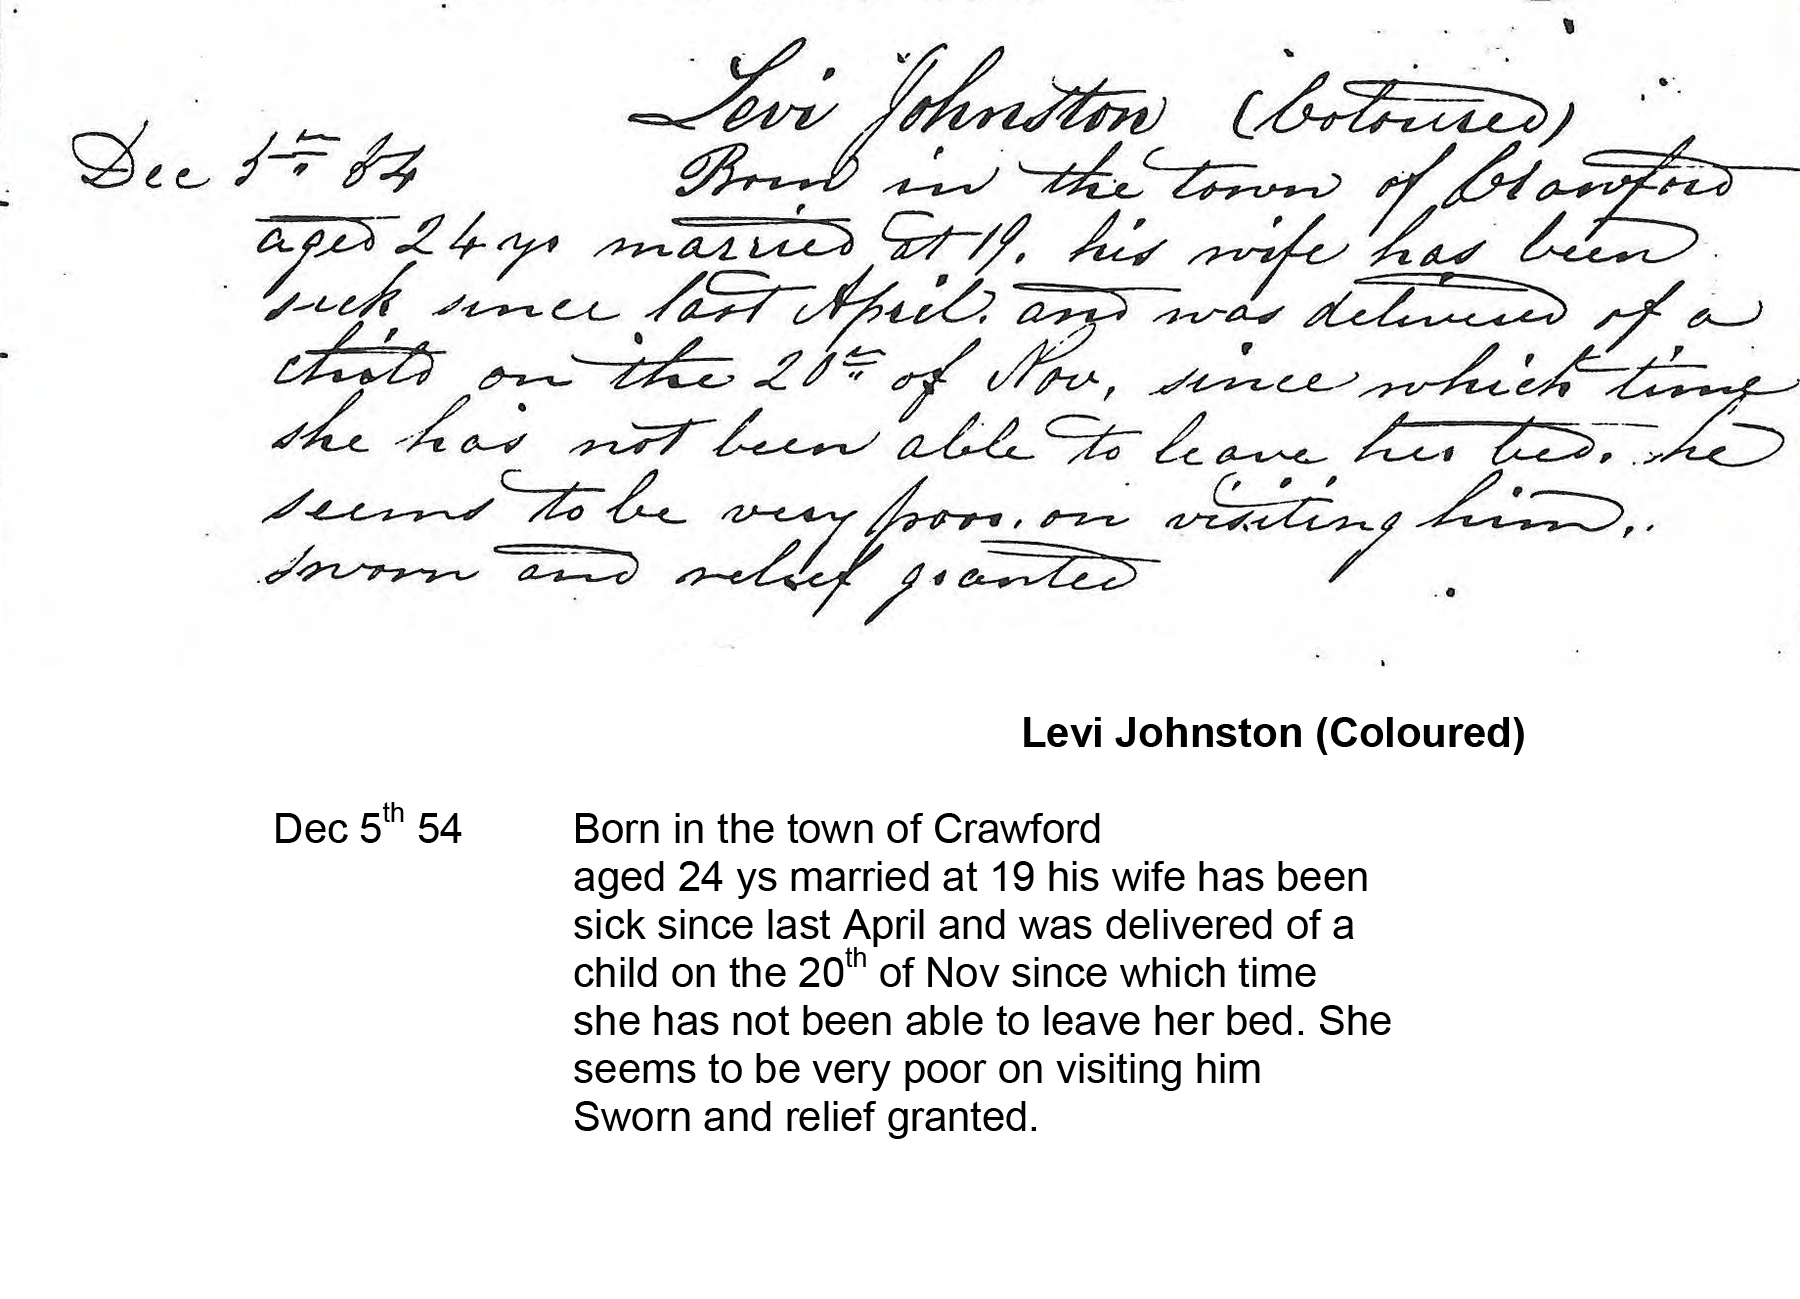 Levi Johnston (Coloured)
Dec 5th 54 Born in the town of Crawford
aged 24 ys married at 19. his wife has been
sick since last April. and was delivered of a
child on the 20th of Nov, since which time
she has not been able to leave her bed. he
seems to be very poor. on visiting him..
sworn and relief granted
Levi Johnston (Coloured)
Dec 5th 54 Born in the town of Crawford
aged 24 ys married at 19 his wife has been
sick since last April and was delivered of a
child on the 20th of Nov since which time
she has not been able to leave her bed. She
seems to be very poor on visiting him
Sworn and relief granted.